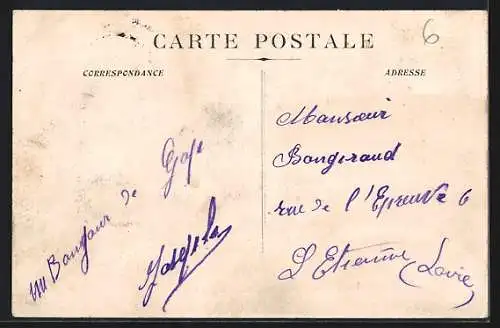 CARTE POSTALE
6
CORRESPONDANCE
ADRESSE
un Bonjour de
Monsieur
Bongiraud
rue de l'Epreuve 6
St Etienne (Loire)